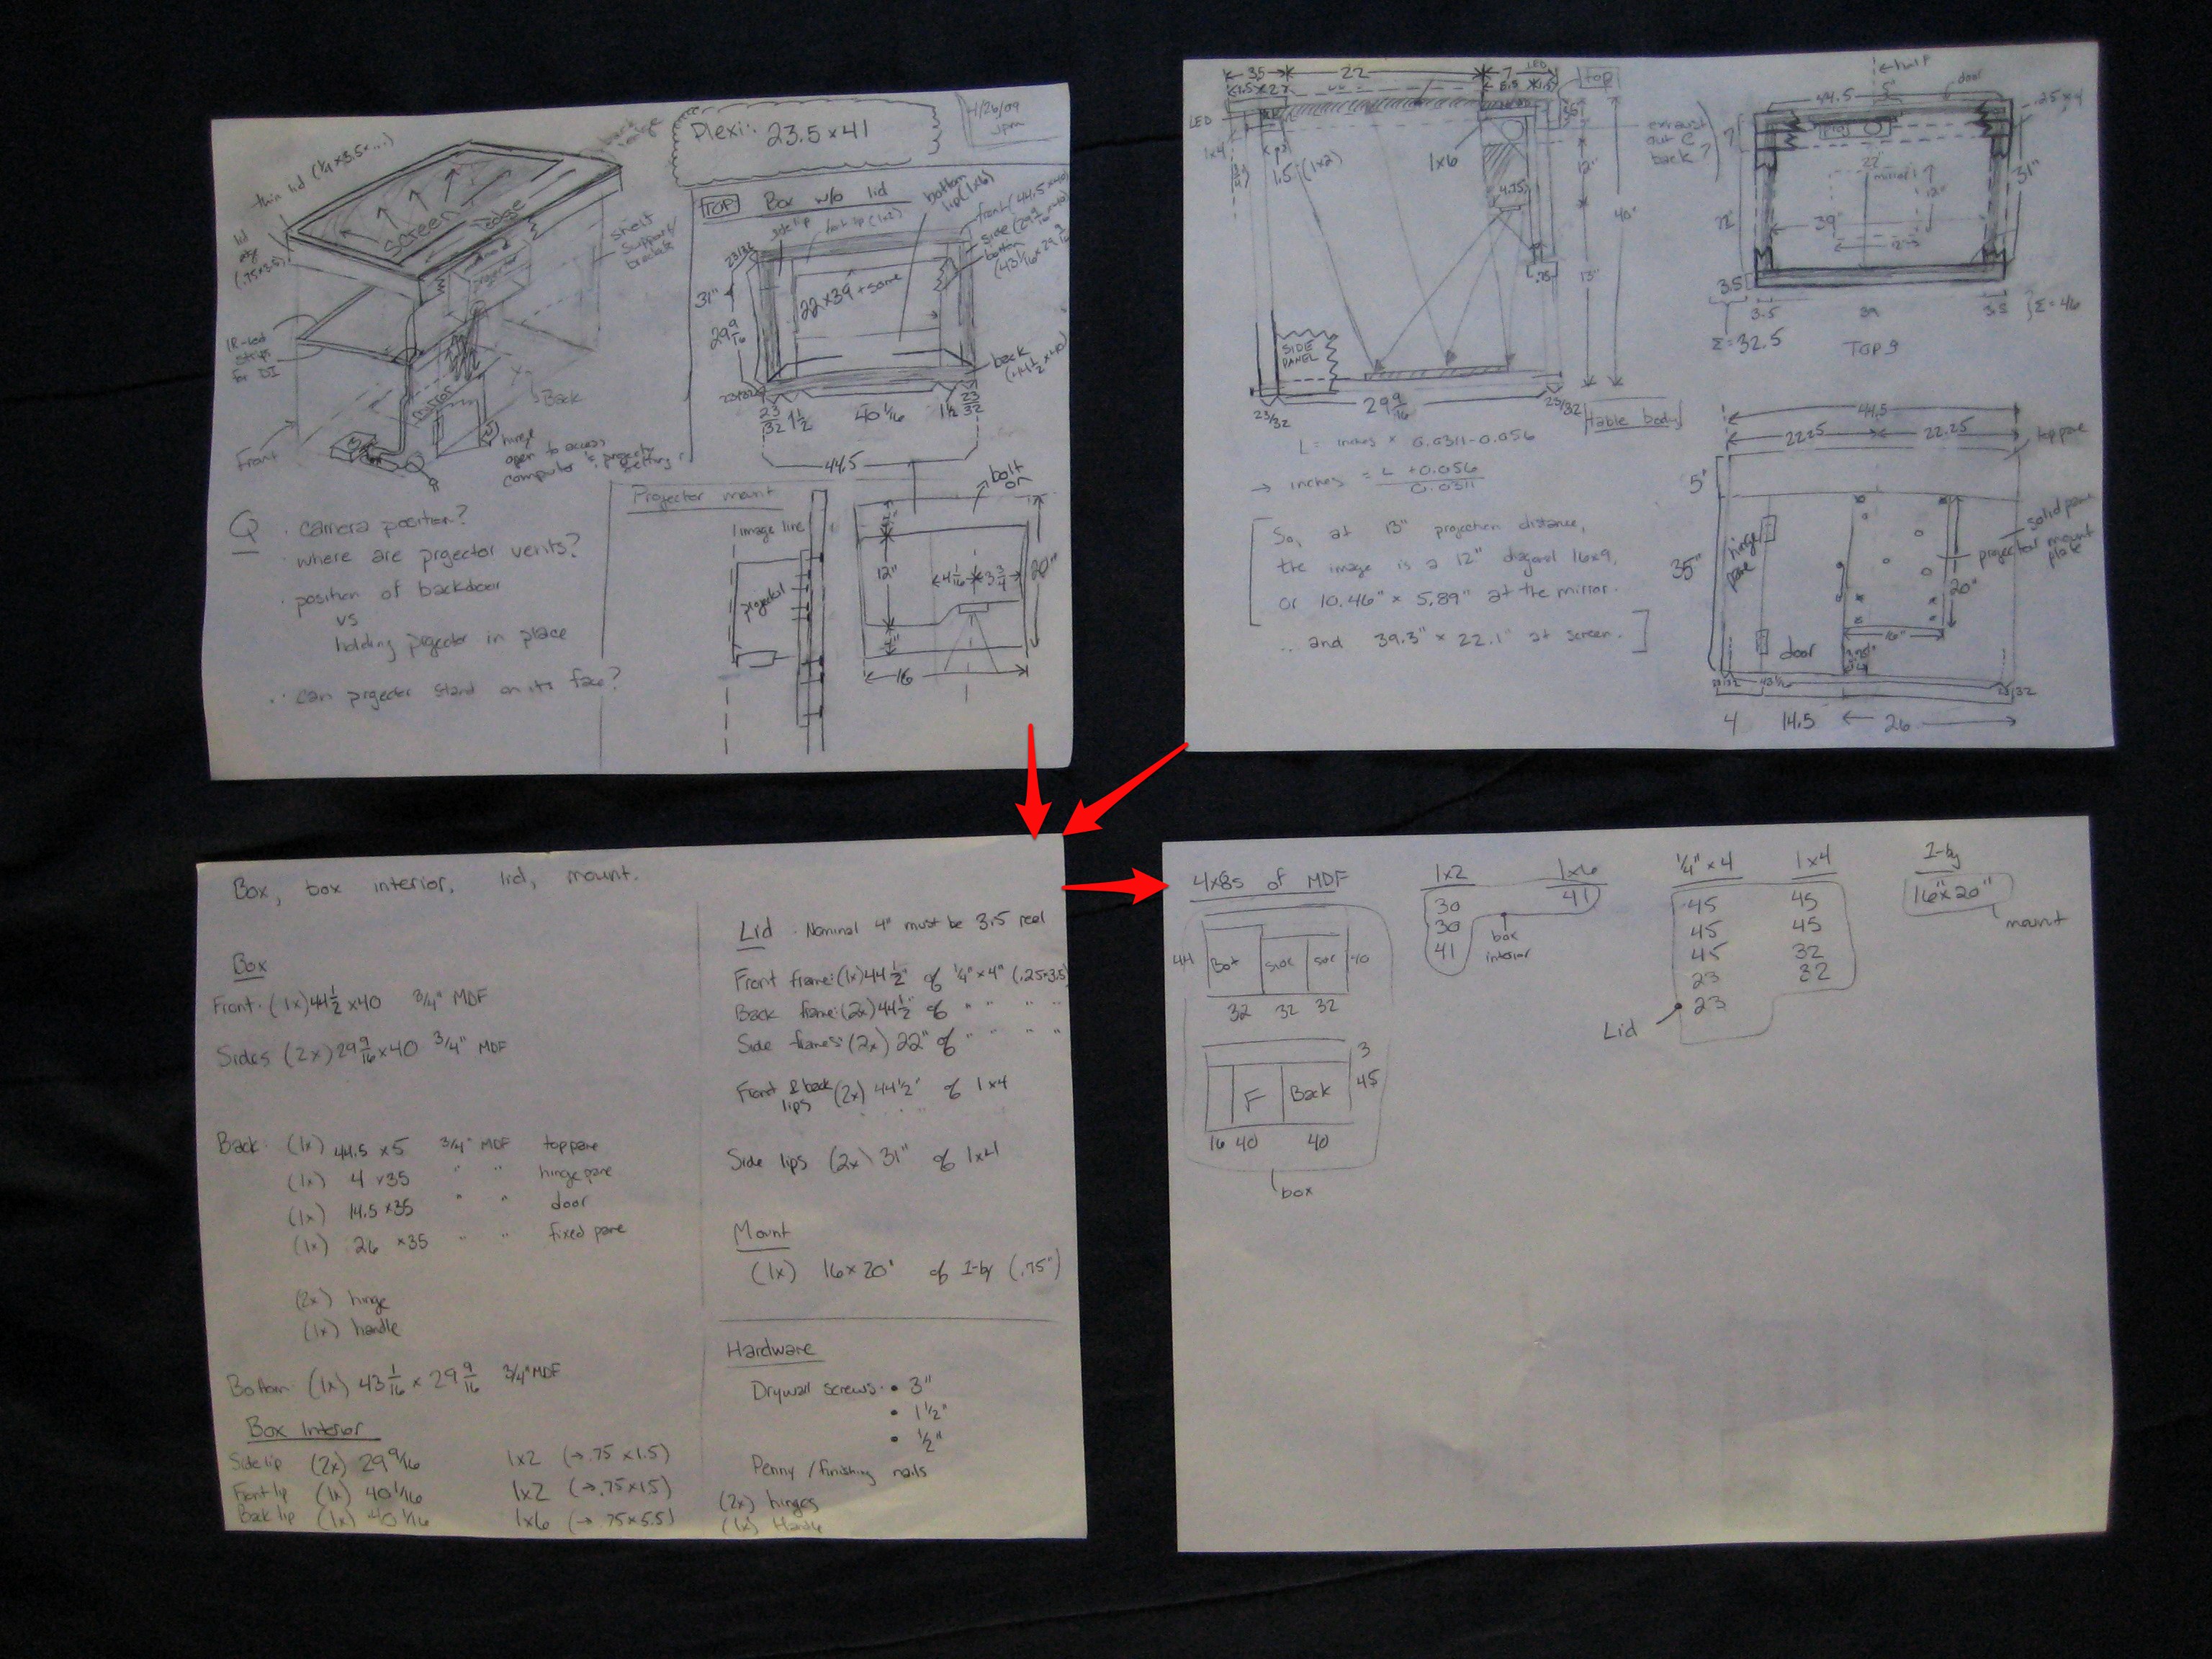 thin lid (1/4 x 3.5 x ...)
lid
edge
(.75x3.5)
Screen
edge
shelf
support/
brackets
IR-led
strips
for DI
mirror
Back
Front
hinge
open to access
computor & projector
settings
Plexi: 23.5 x 41
4/26/09
TOP Box w/o lid
bottom
lip (1x6)
side lip
front (44.5 x 40)
side (29 9/16 x 40)
bottom
(43 1/16 x 29 9/16)
23/32
31"
29 9/16
22 x 39 + some
back
(44 1/2 x 40)
23/32
23/32 1 1/2 40 1/16 1 1/2 23/32
44.5
Q · Camera position?
· where are projector vents?
· position of backdoor
vs
holding projector in place
· can projector stand on its face?
Projector mount
image line
projector
bolt
on
12"
4 1/16 3 3/4
20"
16
3.5 22 7
1.5 x 2
5.5 x 1.5
LED
top
LED
1x4
1.5 (1x2)
1x6
12"
4.75
40"
13"
.75
SIDE
PANEL
23/32 29 9/16 23/32
table body
L = inches x 0.0311-0.056
→ inches = L +0.056
0.0311
So, at 13" projection distance,
the image is a 12" diagonal 16x9,
or 10.46" x 5.89" at the mirror.
... and 39.3" x 22.1" at screen.
half
44.5 5" door
.25 x 4
exhaust
out @
back?
7
Proj
22"
mirror
12"
31"
22"
39"
12"
3.5
3.5 39 3.5 Σ=46
Σ=32.5
TOP
44.5
22.25 22.25
top pane
5"
solid pane
projector mount
plate
hinge
pane
35"
20"
16"
door
3.75"
23/32 43 1/16 23/32
4 14.5 26
Box, box interior, lid, mount.
Box
Front: (1x) 44 1/2 x 40 3/4" MDF
Sides (2x) 29 9/16 x 40 3/4" MDF
Back: (1x) 44.5 x 5 3/4" MDF top pane
(1x) 4 x 35 " " hinge pane
(1x) 14.5 x 35 " " door
(1x) 26 x 35 " " fixed pane
(2x) hinge
(1x) handle
Bottom: (1x) 43 1/16 x 29 9/16 3/4" MDF
Box Interior
Side lip (2x) 29 9/16 1x2 (→ .75 x 1.5)
Front lip (1x) 40 1/16 1x2 (→ .75 x 1.5)
Back lip (1x) 40 1/16 1x6 (→ .75 x 5.5)
Lid · Nominal 4" must be 3.5 real
Front frame: (1x) 44 1/2" of 1/4" x 4" (.25x3.5)
Back frame: (2x) 44 1/2" of " " " "
Side frames: (2x) 22" of " " " "
Front & back (2x) 44 1/2" of 1x4
lips
Side lips (2x) 31" of 1x4
Mount
(1x) 16 x 20" of 1-by (.75")
Hardware
Drywall screws: • 3"
• 1 1/2"
• 1/2"
Penny / finishing nails
(2x) hinges
(1x) Handle
4x8s of MDF
44 Bot side side 40
32 32 32
3
F Back 45
16 40 40
box
1x2 1x6
30 41
30
41
box
interior
1/4" x 4 1x4
45 45
45 45
45 32
23 32
23
Lid
1-by
16" x 20"
mount